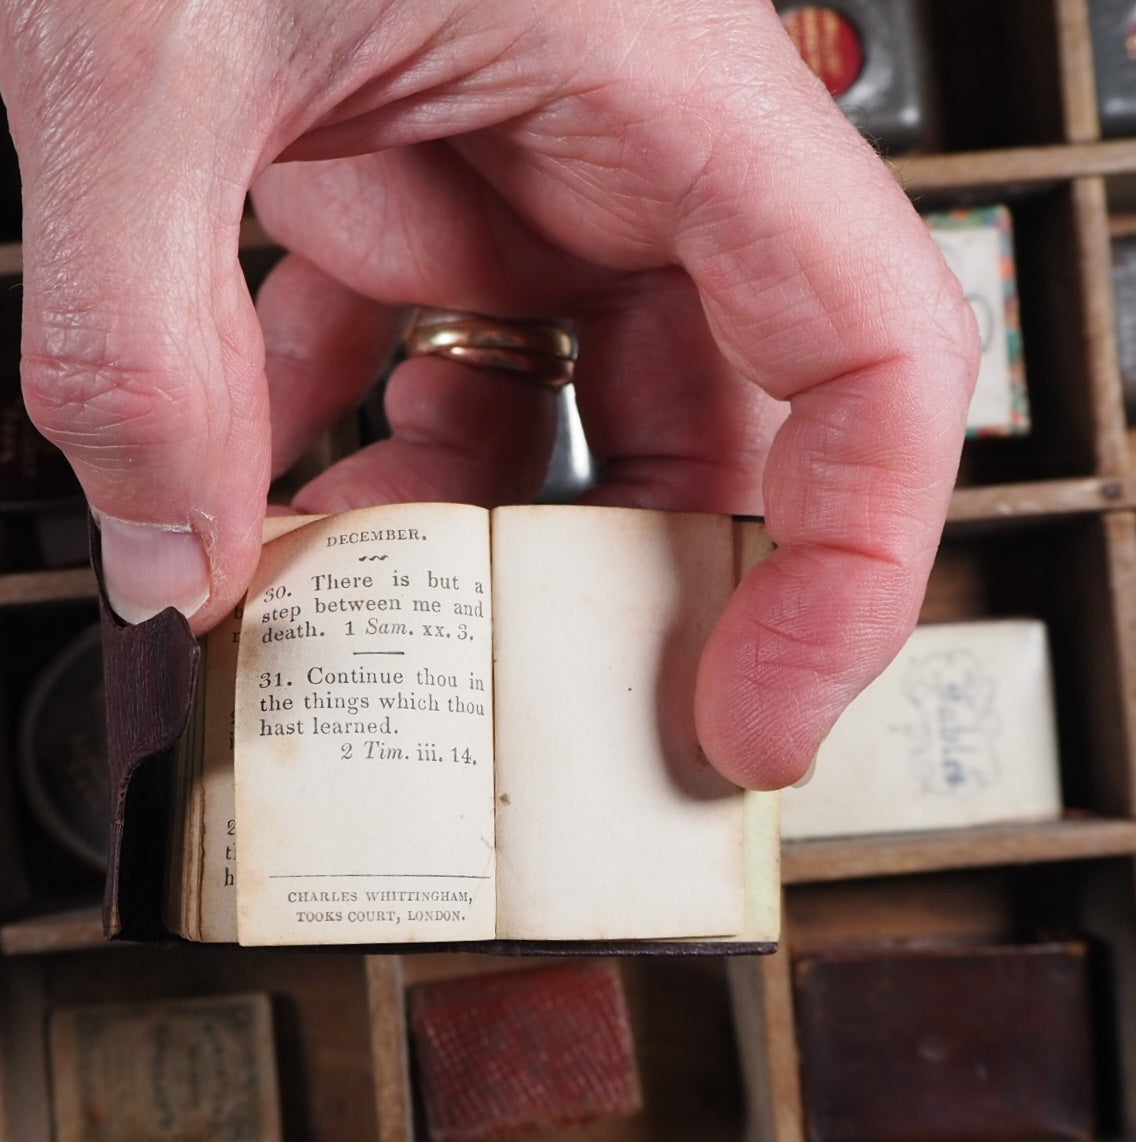 DECEMBER.
30. There is but a
step between me and
death. 1 Sam. xx. 3.
31. Continue thou in
the things which thou
hast learned.
2 Tim. iii. 14.
CHARLES WHITTINGHAM,
TOOKS COURT, LONDON.